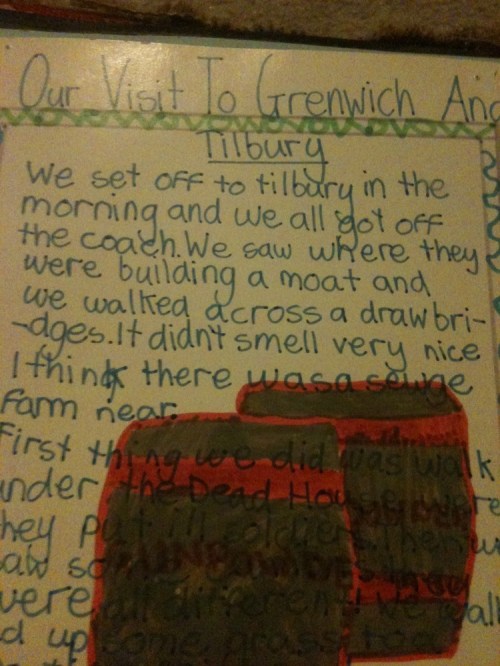 Our Visit To Grenwich And
Tilbury
We set off to tilbury in the
morning and we all got off
the coach. We saw where they
were building a moat and
we walked across a drawbri-
-dges. It didn't smell very nice
I think there was a sewge
farm near.
First thing we did was walk
under the Dead House were
they put ill soldiers. Then we
saw some
were all different! We walk
d up some grass